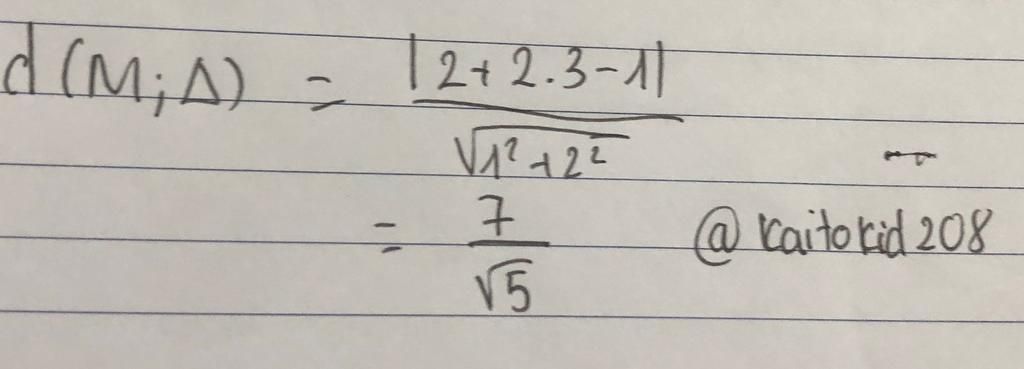 d(M;Δ) = |2+2.3-1|
√1²+2²
= 7 @kaitokid208
√5